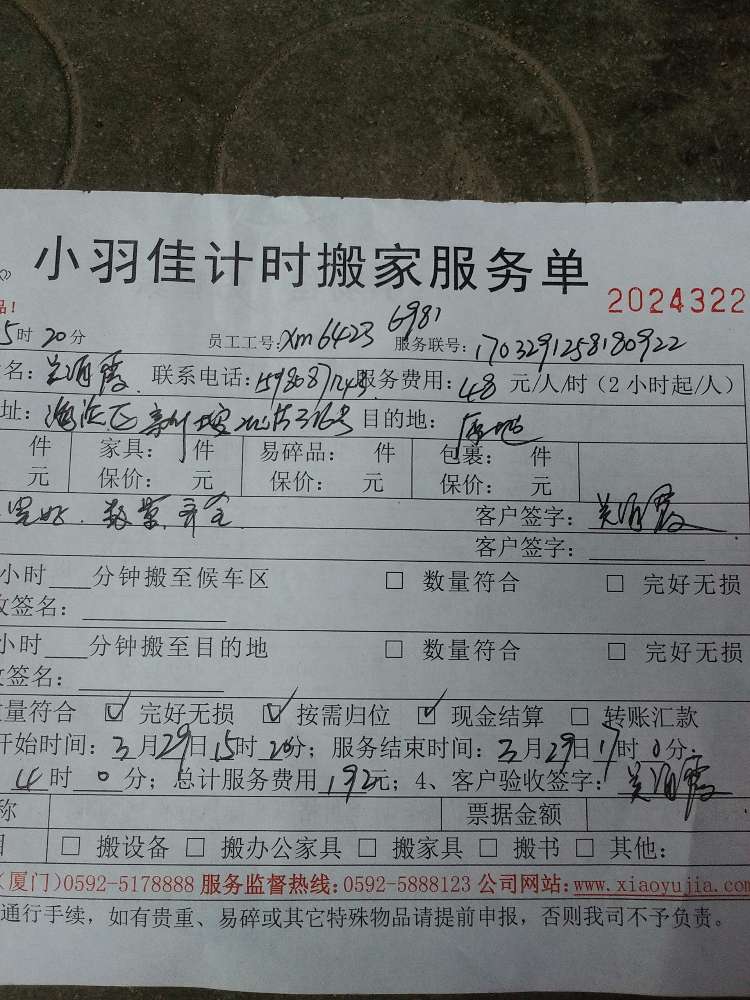 小羽佳计时搬家服务单
2024322
品!
5时20分 员工工号:xm6423 6981 服务联号:1703291258180922
名: 联系电话: 服务费用:48元/人/时(2小时起/人)
址: 目的地:原地
件 家具: 件 易碎品: 件 包裹: 件
元 保价: 元 保价: 元 保价: 元
完好、数量齐全 客户签字:
客户签字:
小时 分钟搬至候车区 □ 数量符合 □ 完好无损
收签名:
小时 分钟搬至目的地 □ 数量符合 □ 完好无损
收签名:
数量符合 ☑ 完好无损 ☑ 按需归位 ☑ 现金结算 □ 转账汇款
开始时间:3月29日15时20分;服务结束时间:3月29日17时0分;
4时0分;总计服务费用192元;4、客户验收签字:
称 票据金额
目 □ 搬设备 □ 搬办公家具 □ 搬家具 □ 搬书 □ 其他:
(厦门)0592-5178888 服务监督热线:0592-5888123 公司网站:www.xiaoyujia.com
通行手续,如有贵重、易碎或其它特殊物品请提前申报,否则我司不予负责。